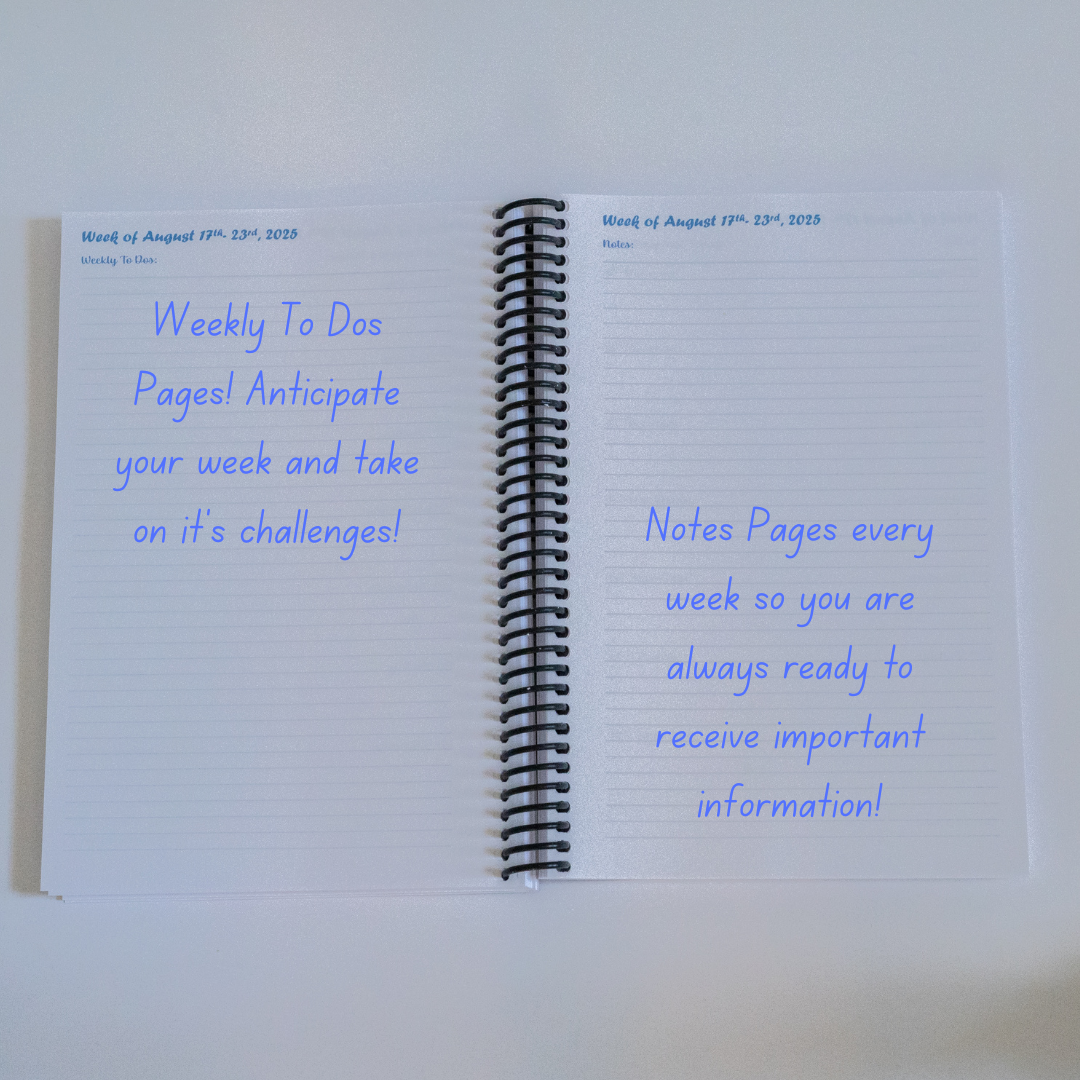 Week of August 17th- 23rd, 2025
Weekly To Dos:
Weekly To Dos
Pages! Anticipate
your week and take
on it's challenges!
Week of August 17th- 23rd, 2025
Notes:
Notes Pages every
week so you are
always ready to
receive important
information!